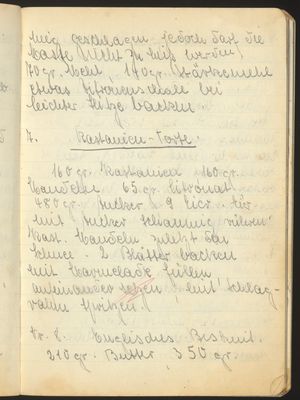 geschlagen jedoch darf die
Masse nicht zu heiß werden)
70 gr. Mehl, 140 gr. Stärkemehl
etwas Zitronenschale bei
leichter Hitze backen.
7. Kastanien-Torte.
160 gr. Kastanien 160 gr.
Mandeln 65 gr. Zitronat
480 gr. Zucker 9 Eier.
mit Zucker schaumig rühren
Kast. Mandeln zuletzt den
Schnee. 2 Blätter backen
mit Marmelade füllen
aufeinander setzen, mit Schlag-
rahm spritzen.
Nr. 8. Englisches Biskuit.
210 gr. Butter 350 gr.